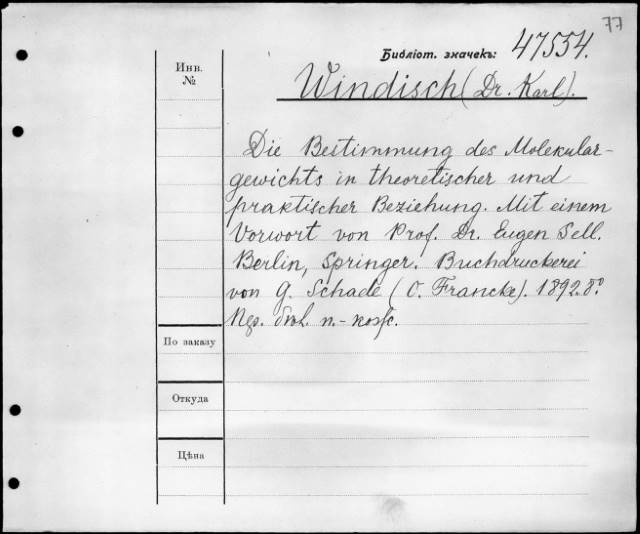 77
Библіот. значекъ: 47554.
Инв.
№
Windisch (Dr. Karl).
Die Bestimmung des Molekular-
gewichts in theoretischer und
praktischer Beziehung. Mit einem
Vorwort von Prof. Dr. Eugen Sell.
Berlin, Springer. Buchdruckerei
von G. Schade (O. Francke). 1892. 8º
По заказу
Откуда
Цѣна